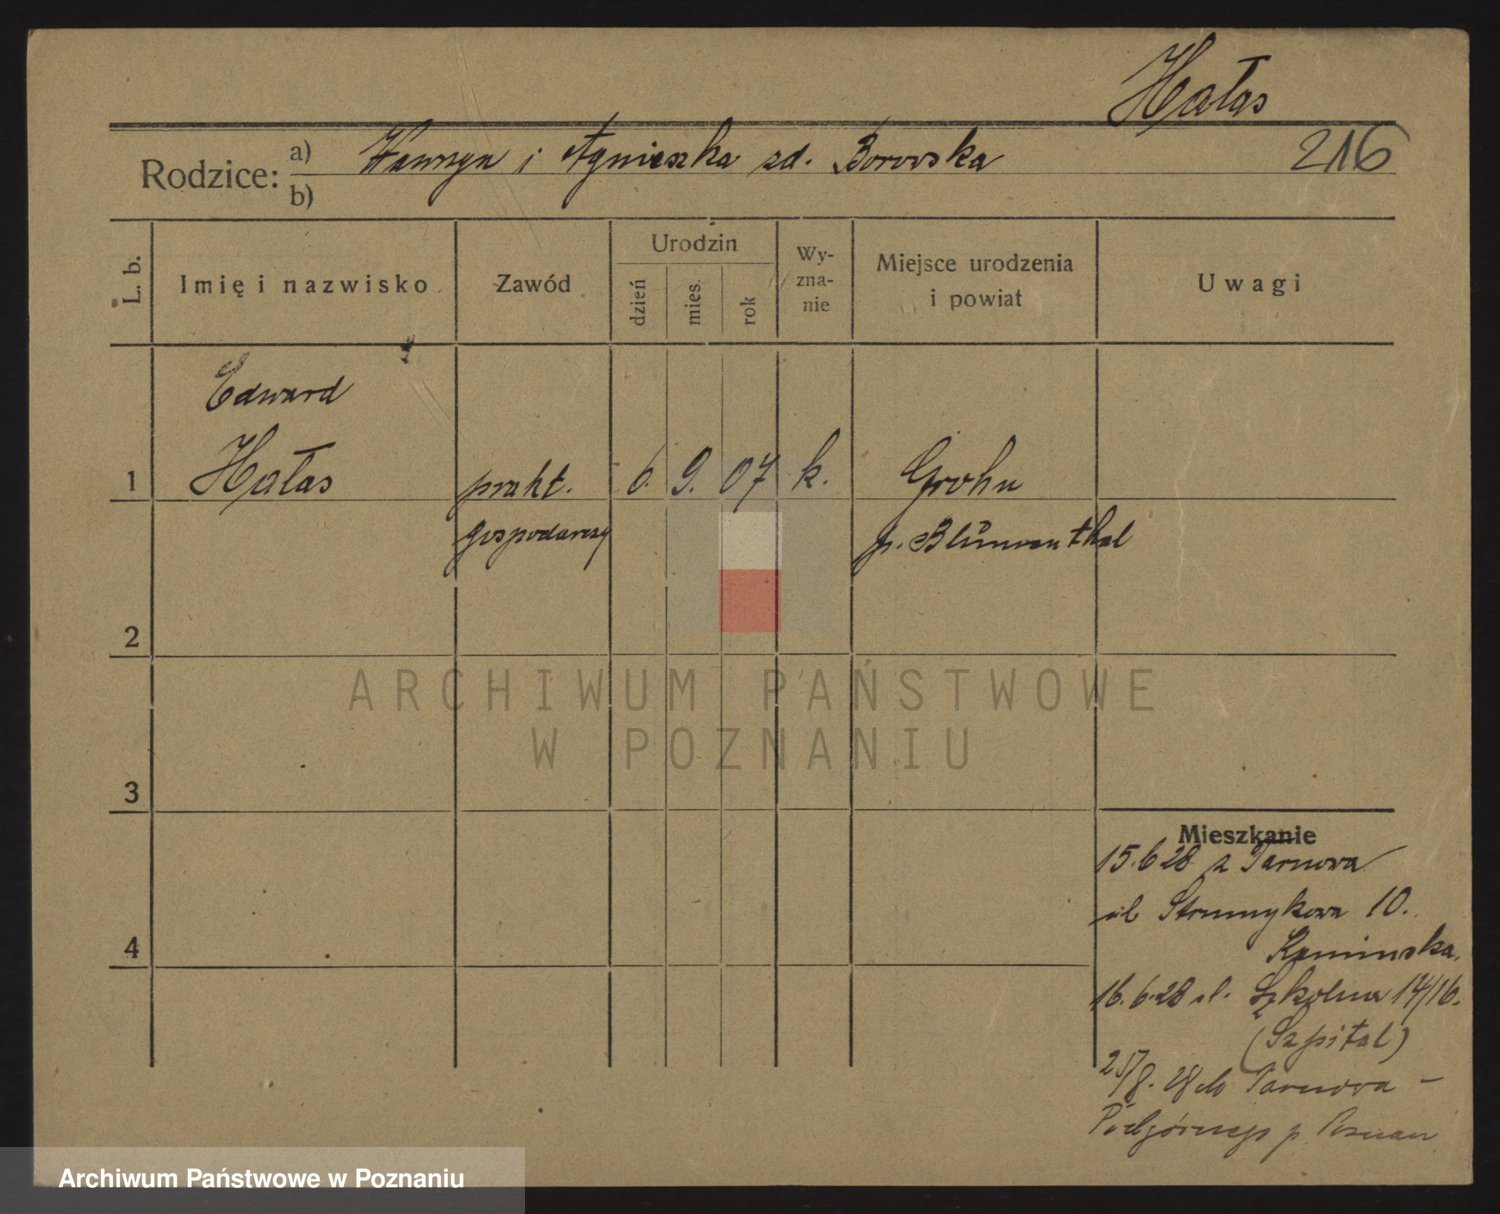 Hałas
Rodzice: a) Wawrzyn i Agnieszka zd. Borowska 216
b)
L. b. Imię i nazwisko Zawód Urodzin dzień mies. rok Wy-zna-nie Miejsce urodzenia i powiat Uwagi
Edward
1 Hałas prakt. 6. 9. 07 k. Grohn
gospodarczy p. Blumenthal
2
ARCHIWUM PAŃSTWOWE
W POZNANIU
3
Mieszkanie
15.6 28 z Tarnowa
ul Strumykowa 10.
4
Kaminska,
16.6.28 ul. Szkolna 14/16.
(Szpital)
25/8. 28 do Tarnowa –
Podgórnego p. Poznań
Archiwum Państwowe w Poznaniu